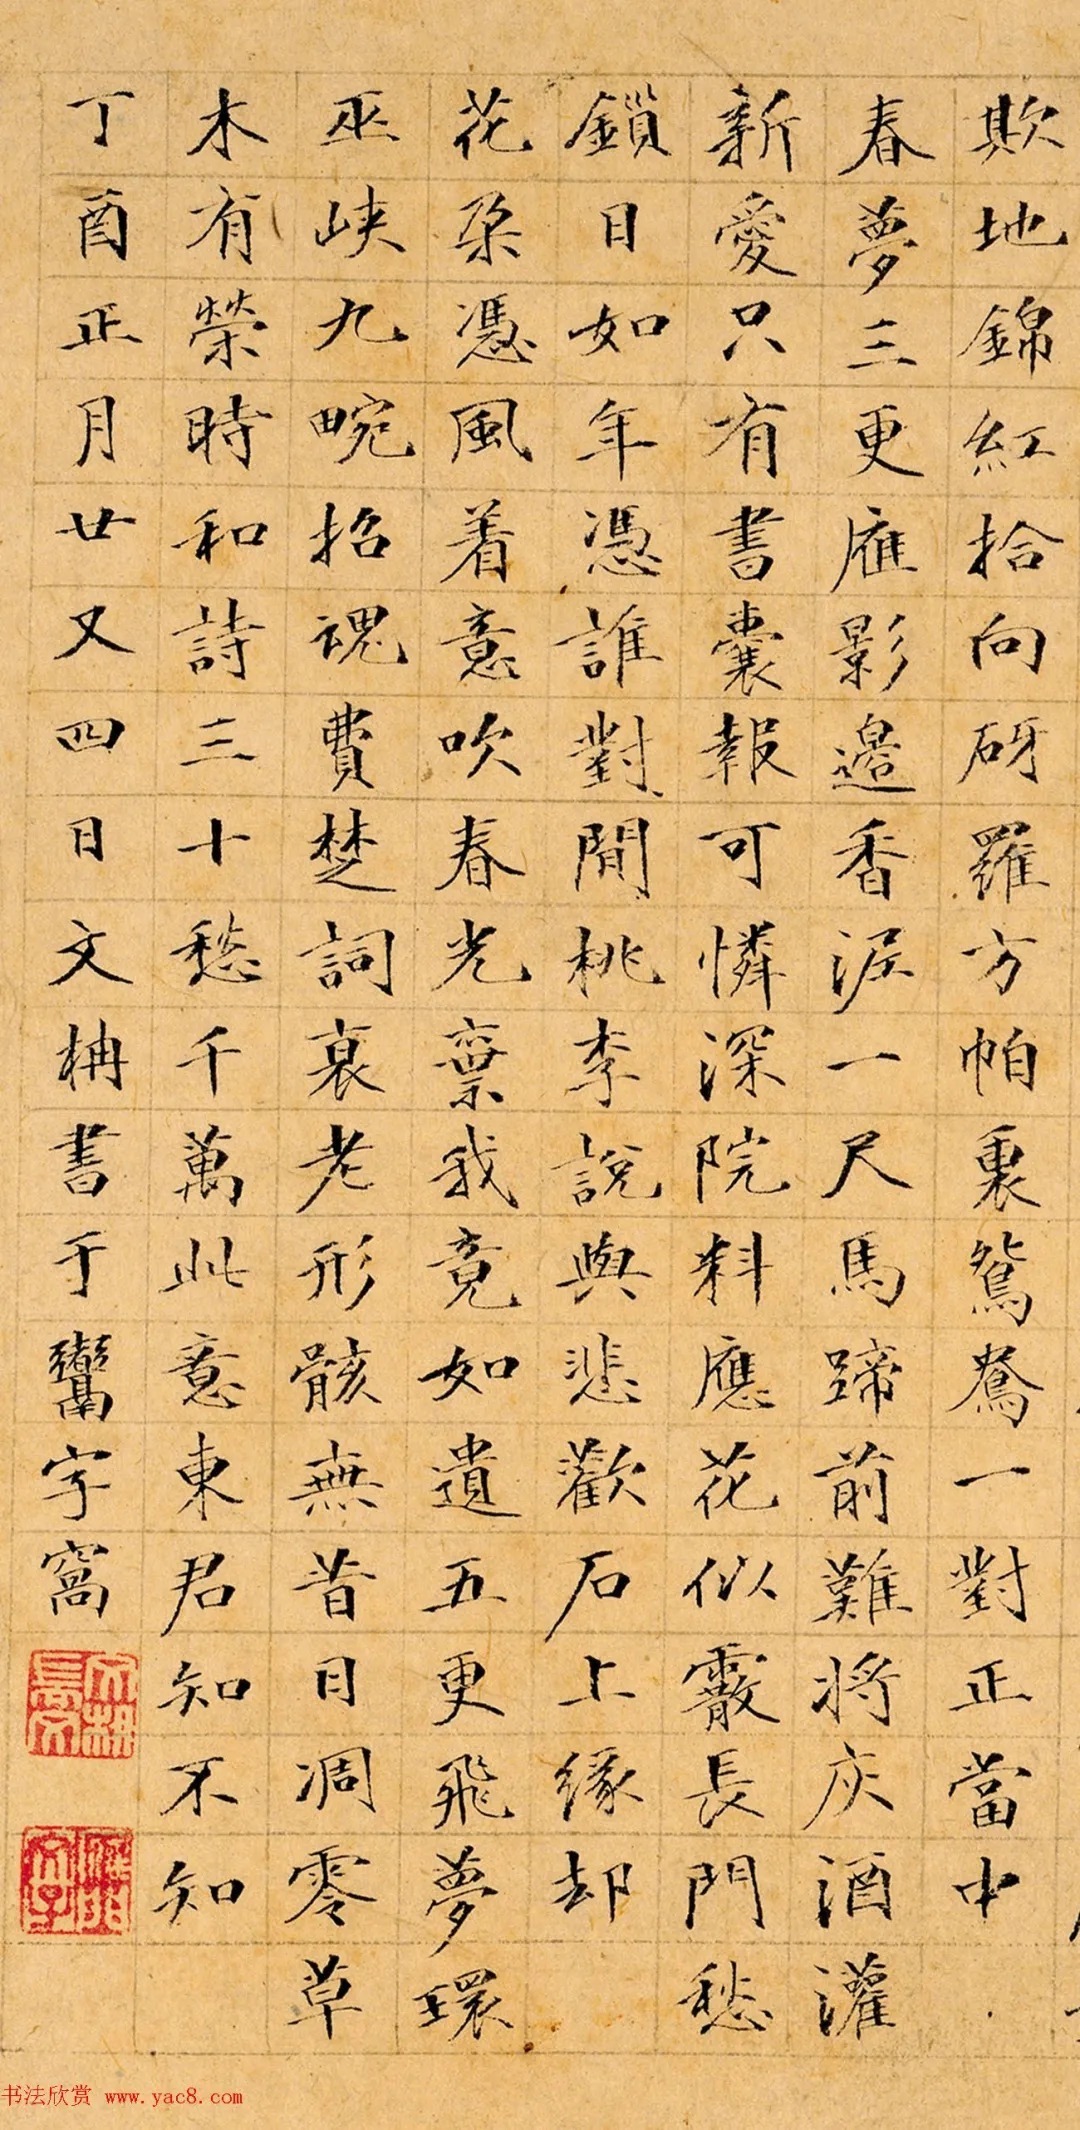 欺地錦紅拾向砑羅方帕裏鴛鴦一對正當中
春夢三更雁影邊香泥一尺馬蹄前難將灰酒灌
新愛只有書囊報可憐深院料應花似霰長門愁
鎖日如年憑誰對閒桃李說與悲歡石上緣却
花朶憑風着意吹春光棄我竟如遺五更飛夢環
巫峽九畹招魂費楚詞衰老形骸無昔日凋零草
木有榮時和詩三十愁千萬此意東君知不知
丁酉正月廿又四日文枏書于鬻字窩
书法欣赏 www.yac8.com